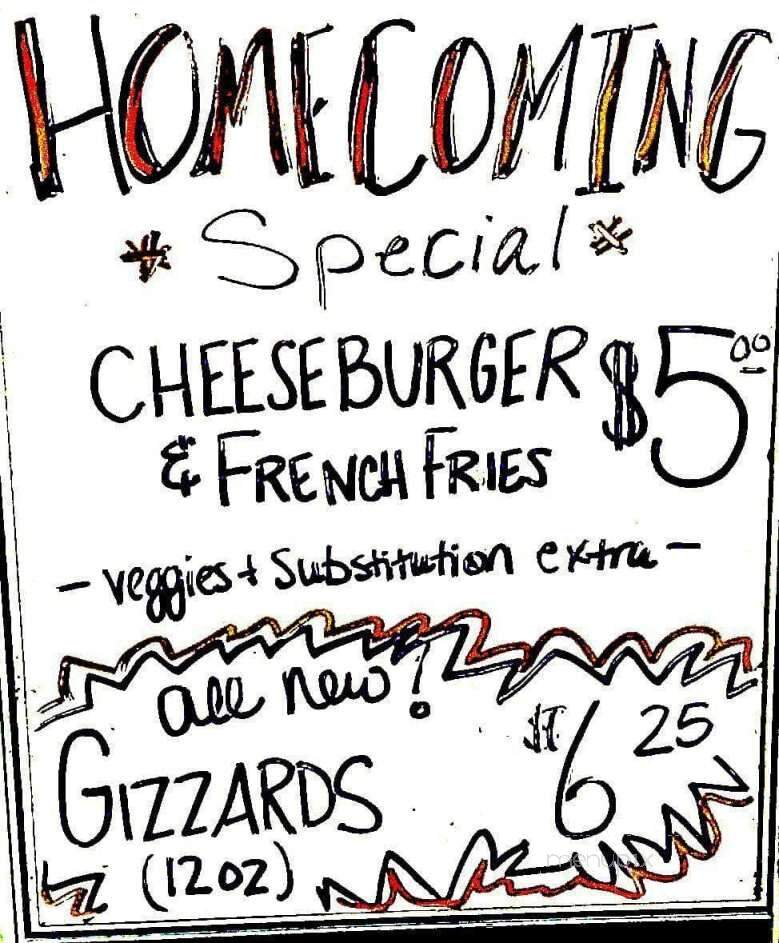 HOMECOMING
* Special *
CHEESEBURGER $5.00
& FRENCH FRIES
- veggies + Substitution extra -
all new!
GIZZARDS $6.25
(12oz)